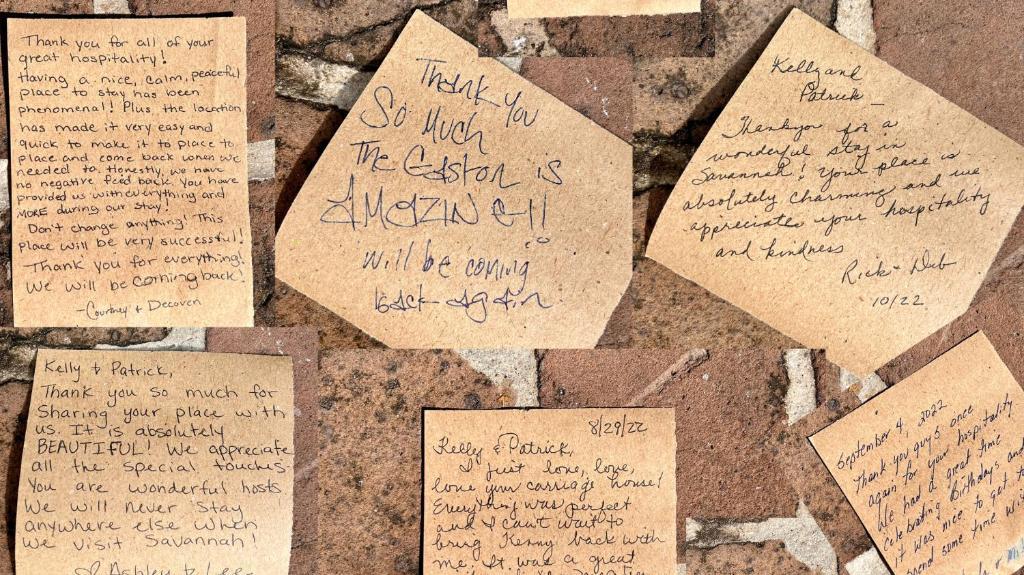 Thank you for all of your
great hospitality!
Having a nice, calm, peaceful
place to stay has been
phenomenal! Plus the location
has made it very easy and
quick to make it to place to
place and come back when we
needed to. Honestly, we have
no negative feed back. You have
provided us with everything and
MORE during our stay!
Don't change anything! This
place will be very successful!
Thank you for everything!
We will be coming back!
-Courtney + Decoven
Thank you
So Much
The Gaston is
AMAZING!!
will be coming
back again
Kelly and
Patrick -
Thank you for a
wonderful stay in
Savannah! Your place is
absolutely charming and we
appreciate your hospitality
and kindness
Rick + Deb
10/22
Kelly & Patrick,
Thank you so much for
sharing your place with
us. It is absolutely
BEAUTIFUL! We appreciate
all the special touches.
You are wonderful hosts
We will never stay
anywhere else when
we visit Savannah!
Ashley & Lee
8/29/22
Kelly & Patrick,
I just love, love,
love your carriage house!
Everything was perfect
and I can't wait to
bring Kenny back with
me. It was a great
September 4, 2022
Thank you guys once
again for your hospitality
We had a great time
celebrating Birthdays and
it was nice to get t
spend some time wi